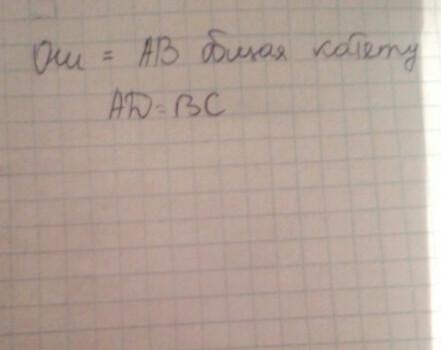 Они = АВ общая катету
AD = BC